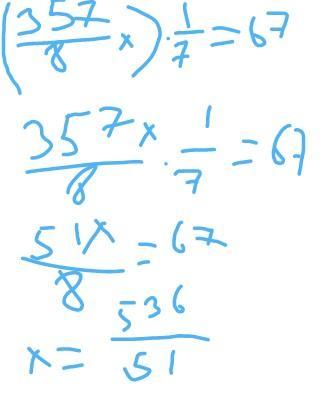 (357/8 x) · 1/7 = 67
357x/8 · 1/7 = 67
51x/8 = 67
x = 536/51